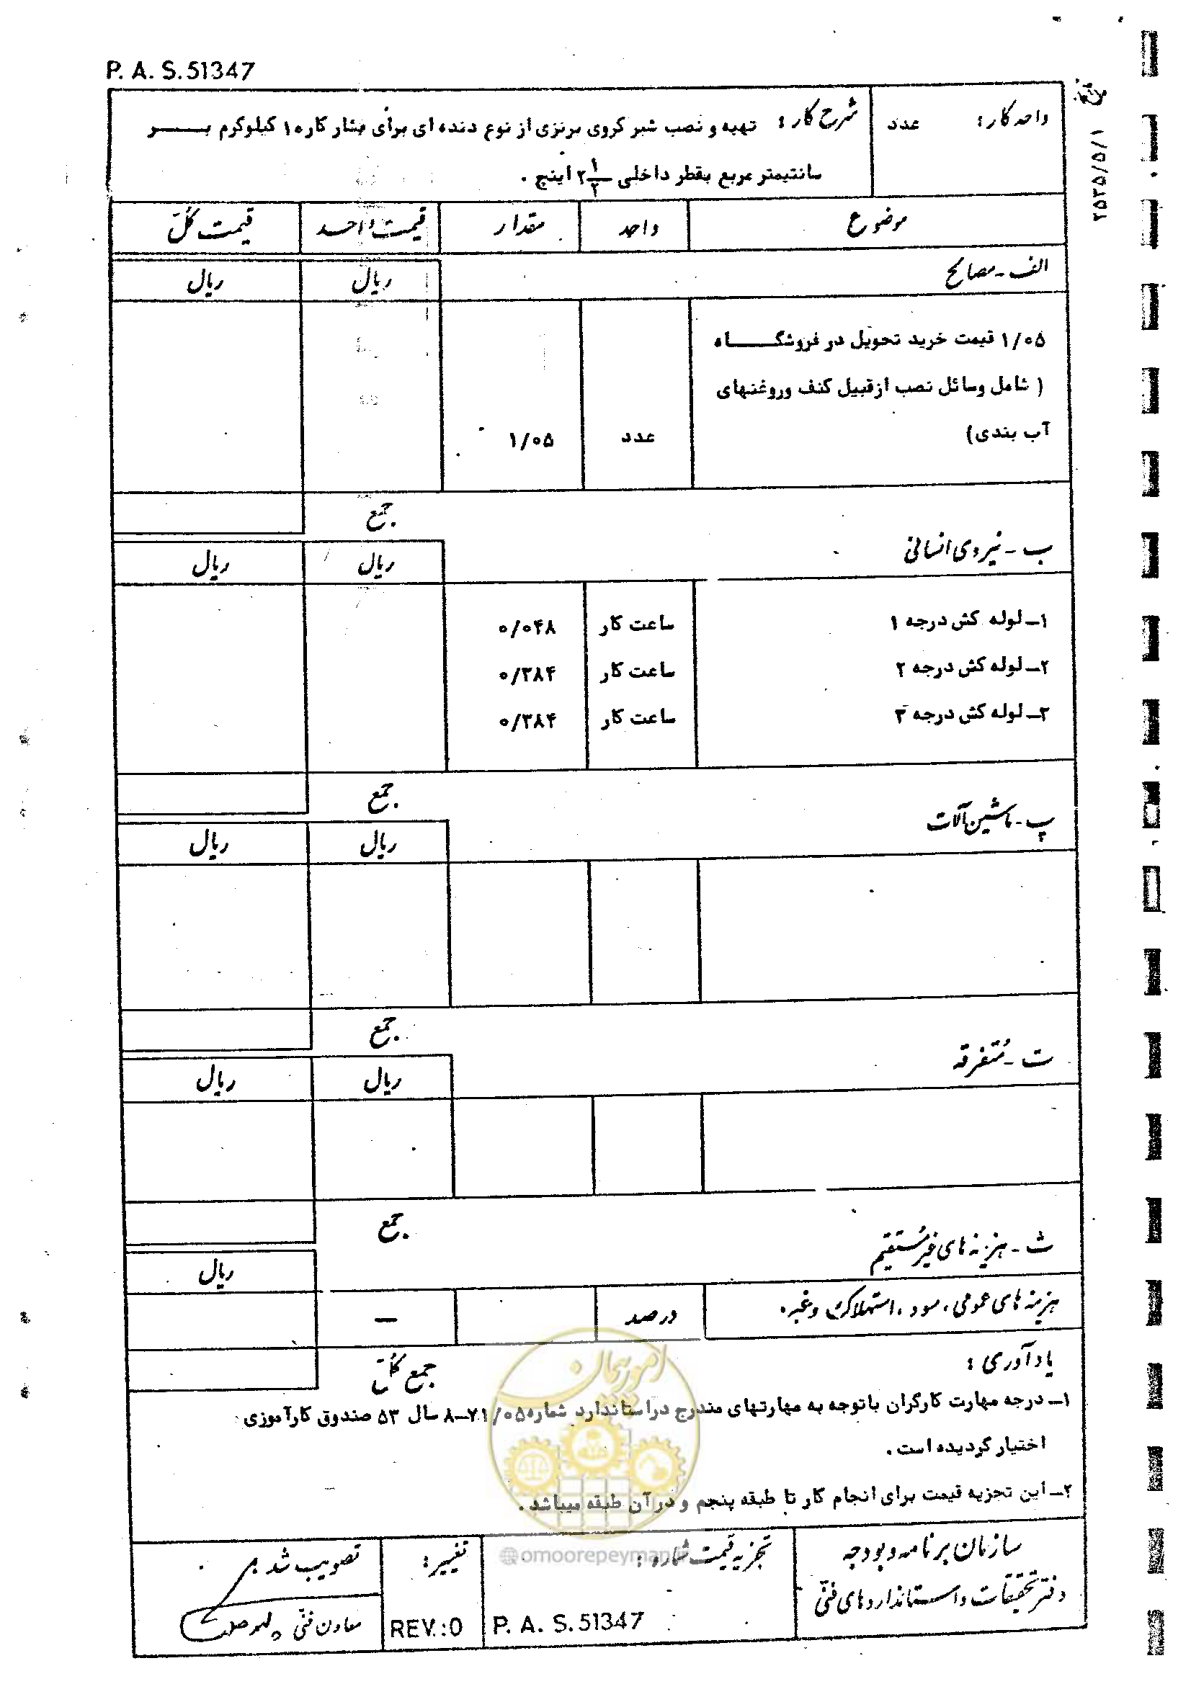 P. A. S. 51347
۲۵۳۵/۵/۱
واحد کار : عدد
شرح کار : تهیه و نصب شیر کروی برنزی از نوع دنده ای برای فشار کار ۱۰ کیلوگرم بر
سانتیمتر مربع بقطر داخلی ۲ ۱/۲ اینچ .
موضوع واحد مقدار قیمت واحد قیمت کل
الف - مصالح ریال ریال
۱/۰۵ قیمت خرید تحویل در فروشگاه
( شامل وسائل نصب ازقبیل کنف وروغنهای
آب بندی) عدد ۱/۰۵
جمع
ب - نیروی انسانی ریال ریال
۱ـ لوله کش درجه ۱ ساعت کار ۰/۰۴۸
۲ـ لوله کش درجه ۲ ساعت کار ۰/۳۸۴
۳ـ لوله کش درجه ۳ ساعت کار ۰/۳۸۴
جمع
پ - ماشین آلات ریال ریال
جمع
ت - مُتفرقه ریال ریال
جمع
ث - هزینه های غیرمُستقیم ریال
هزینه های عمومی ، سود ، استهلاک وغیره . درصد —
جمع کلّ
یادآوری :
۱ـ درجه مهارت کارگران باتوجه به مهارتهای مندرج دراستاندارد شماره ۷۱/۰۵ـ۸ سال ۵۳ صندوق کارآموزی
اختیار گردیده است .
۲ـ این تجزیه قیمت برای انجام کار تا طبقه پنجم و درآن طبقه میباشد .
امور پیمان
@omoorepeyman.ir
سازمان برنامه و بودجه
دفتر تحقیقات و استانداردهای فنّی
تجزیه قیمت شماره :
P. A. S. 51347
تغییر :
REV.:0
تصویب شد :
معاون فنّی